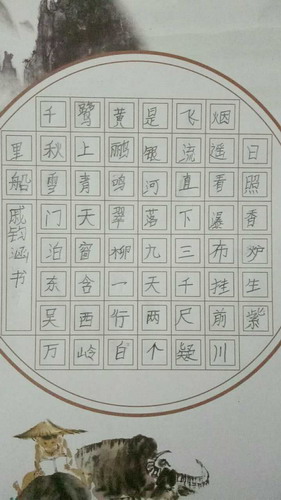 日照香炉生紫
烟遥看瀑布挂前川
飞流直下三千尺疑
是银河落九天两个
黄鹂鸣翠柳一行白
鹭上青天窗含西岭
千秋雪门泊东吴万
里船
戚钧涵书